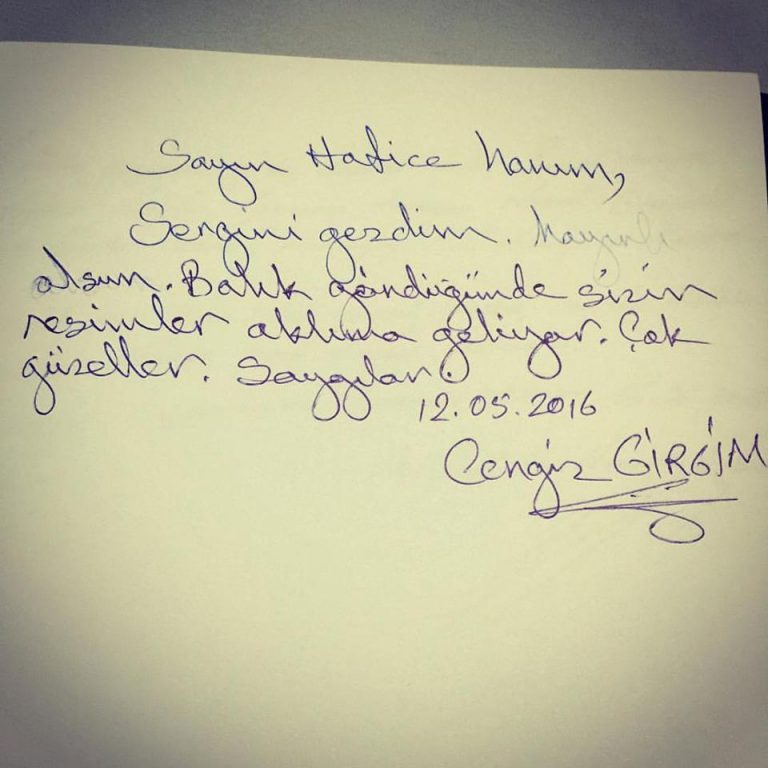 Sayın Hatice hanım,
Sergini gezdim. hayırlı
olsun. Balık gördüğümde sizin
resimler aklıma geliyor. Çok
güzeller. Saygılar.
12.05.2016
Cengiz GİRGİM